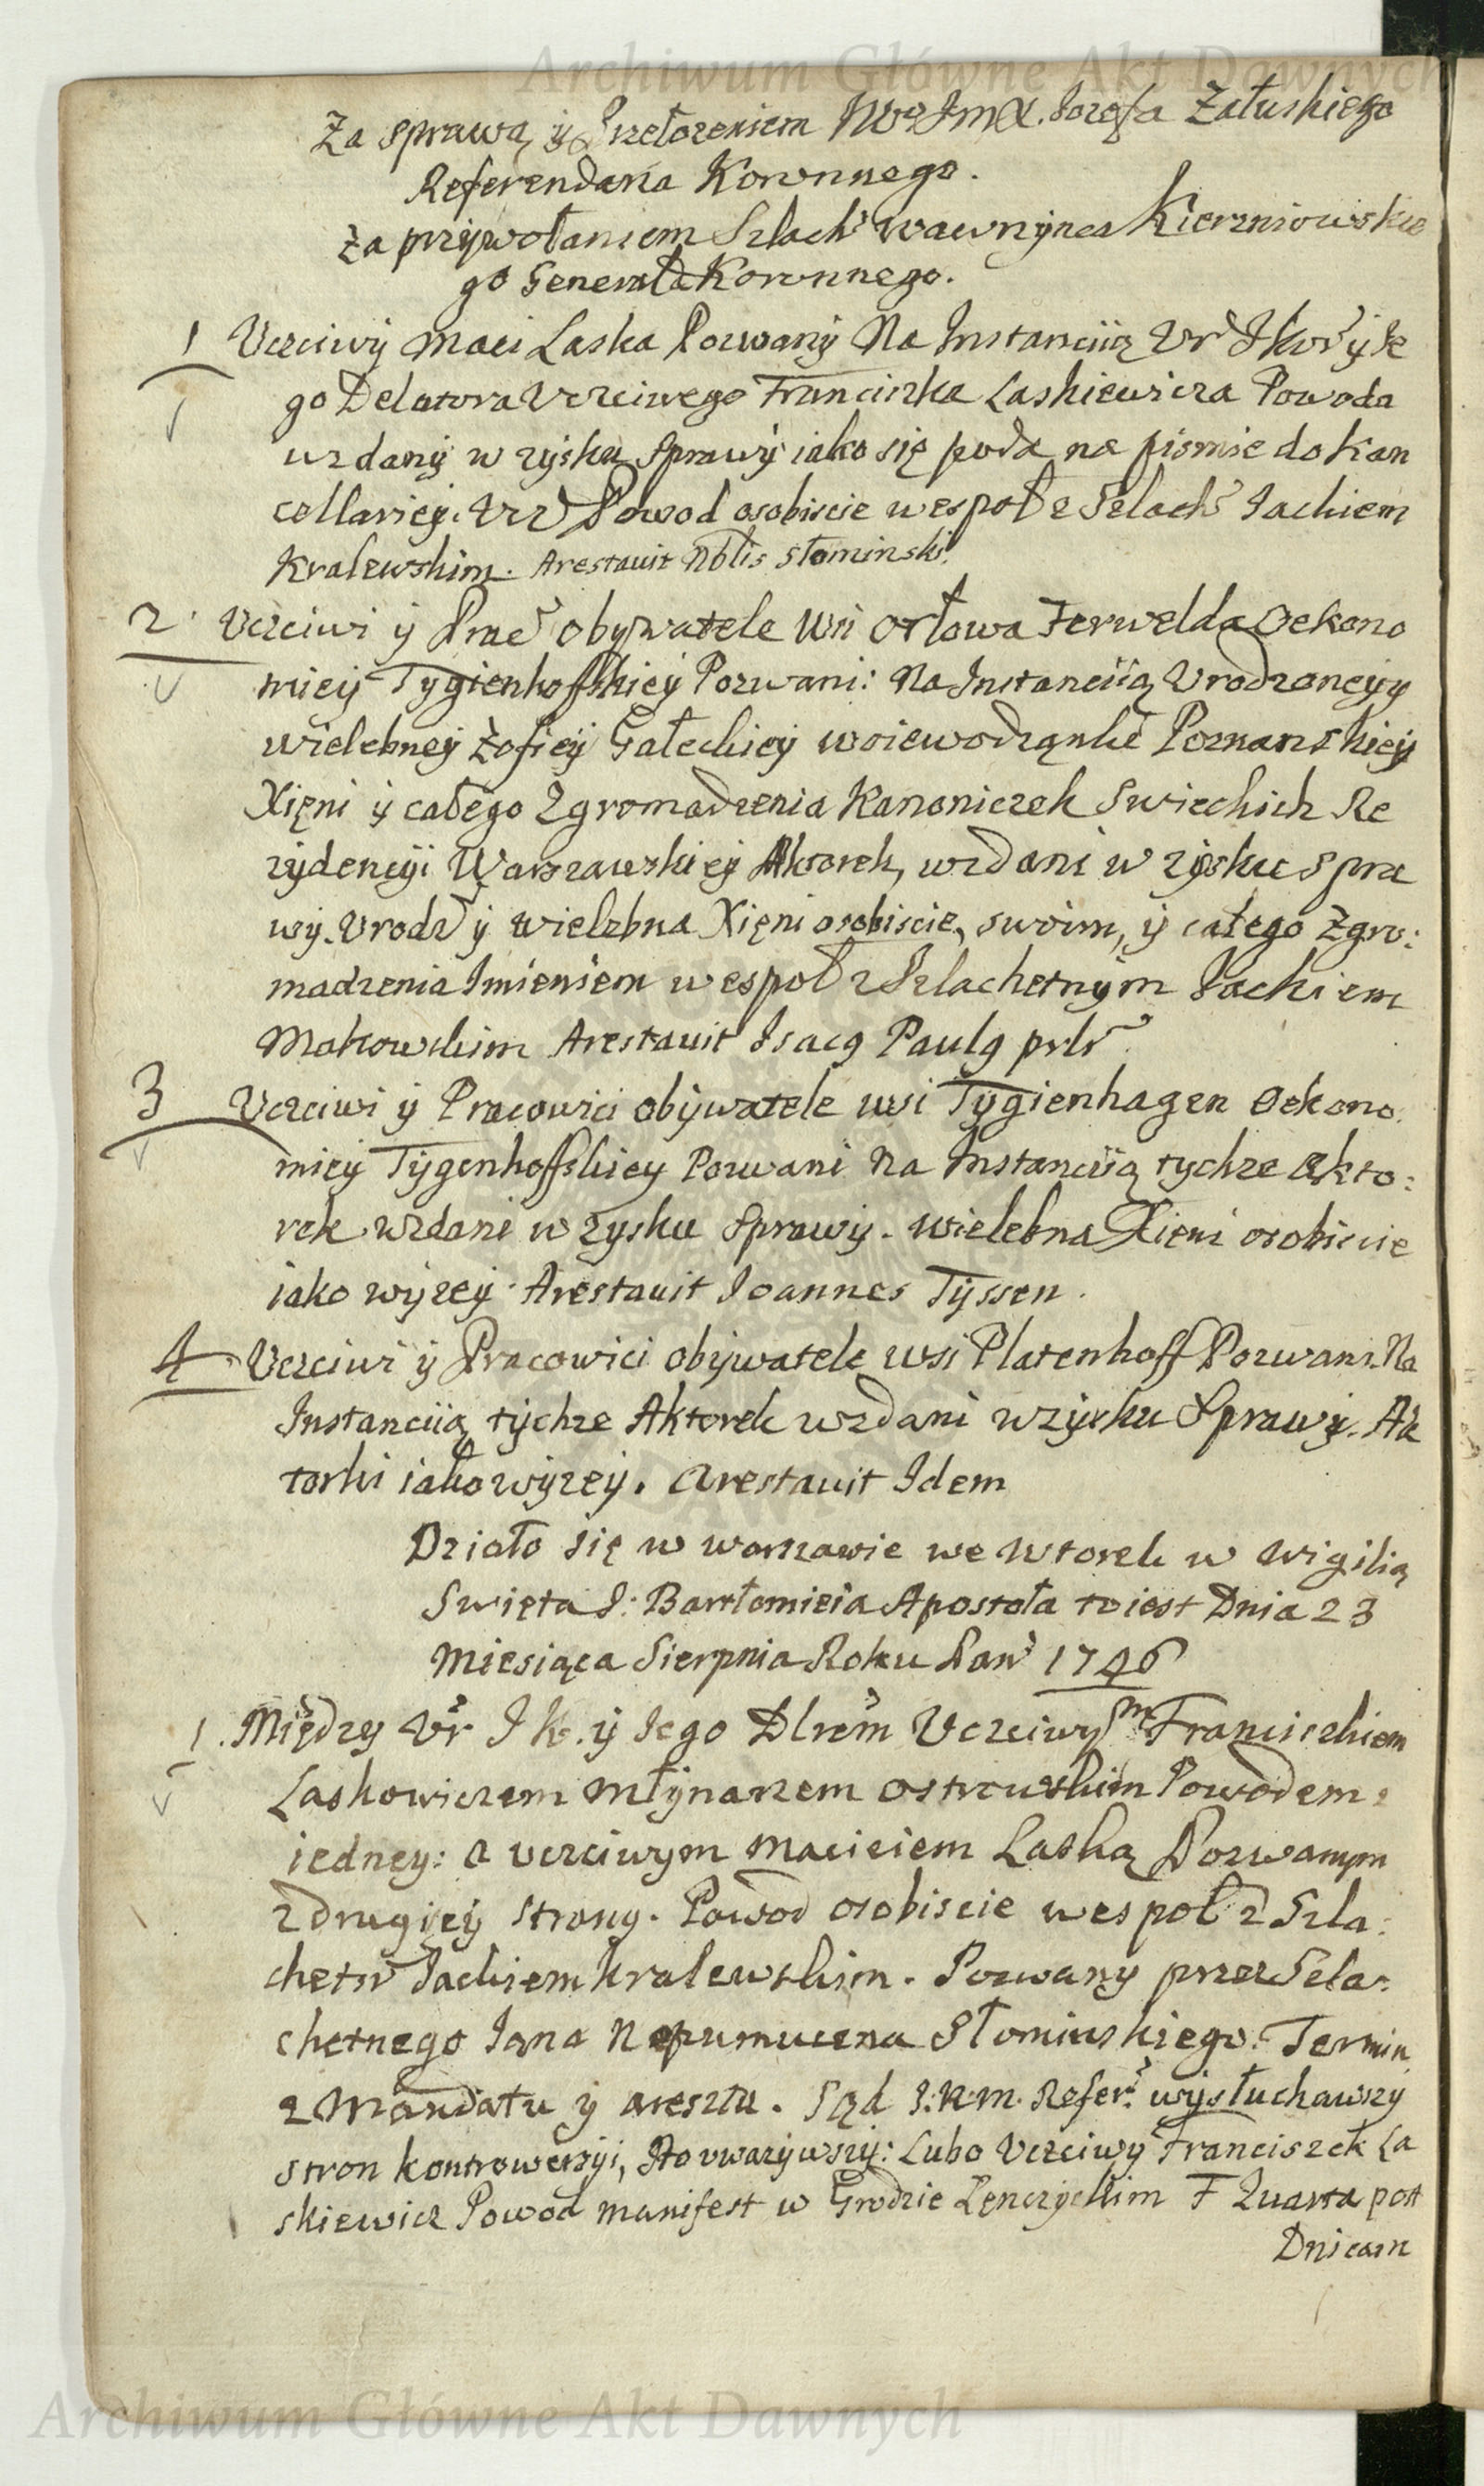 Archiwum Główne Akt Dawnych
Za sprawą y Przełozeniem JWo JmX. Jozefa Załuskiego
Referendarza Koronnego.
Za przywołaniem Szlach. Wawrzynca Kierzniowskie
go Generała Koronnego.
1 Uczciwy Maci Laska Pozwany Na Instancyią Ur J Kor y Je
go Delatora Uczciwego Franciszka Laskiewicza Powoda
wzdany w zysku Sprawy iako się poda na pismie do Kan
cellaryey. Powod osobiscie wespoł z Szlach Jackiem
Kralewskim. Arestavit Nblis Słominski.
2 Uczciwi y Prac obywatele Wsi Orłowa Ferwelda Oekono
miey Tygienhoffskiey Pozwani: Na Instancyią Urodzoney y
wielebney Zofiey Gałeckiey woiewodzanki Poznanskiey
Xięni y całego Zgromadzenia Kanoniczek Swieckich Re
zydencyi Warszawskiey Aktorek, wzdani w zysku spra
wy. Urodz y wielebna Xięni osobiscie, swoim, y całego Zgro:
madzenia Imieniem wespoł z Szlachetnym Jackiem
Makowskim Arestavit Isacq Paulq
3 Uczciwi y Pracowici obywatele wsi Tygienhagen Oekono.
miey Tygenhoffskiey Pozwani Na Instancyią tychze Akto:
rek wzdani w zysku Sprawy. wielebna Xieni osobiscie
iako wyzey. Arestavit Joannes Tyssen.
4 Uczciwi y Pracowici obywatele wsi Platenhoff Pozwani Na
Instancyią tychze Aktorek wzdani w zysku Sprawy. Ak
torki iako wyzey. Arestavit Idem
Działo się w Warszawie we Wtorek w Wigilią
Swięta S: Bartłomieia Apostoła to iest Dnia 23
Miesiąca Sierpnia Roku Pan 1746
1. Między Ur J K. y Jego Dlrem Uczciwym Franciszkiem
Laskowiczem Młynarzem Ostrowskim Powodem z
iedney: a uczciwym Macieiem Laską Pozwanym
z drugiey strony. Powod osobiscie wespoł z Szla:
chetn Jackiem Kralewskim. Pozwany przez Szla:
chetnego Jana Nepumucena Słominskiego. Termin
z Mandatu y aresztu. Sąd J:K:M. Refer: wysłuchawszy
stron kontrowersyi, Ito uwazywszy: Lubo Uczciwy Franciszek La
skiewicz Powod manifest w Grodzie Łęnczyckim F Quarta post
Dnicam
Archiwum Główne Akt Dawnych